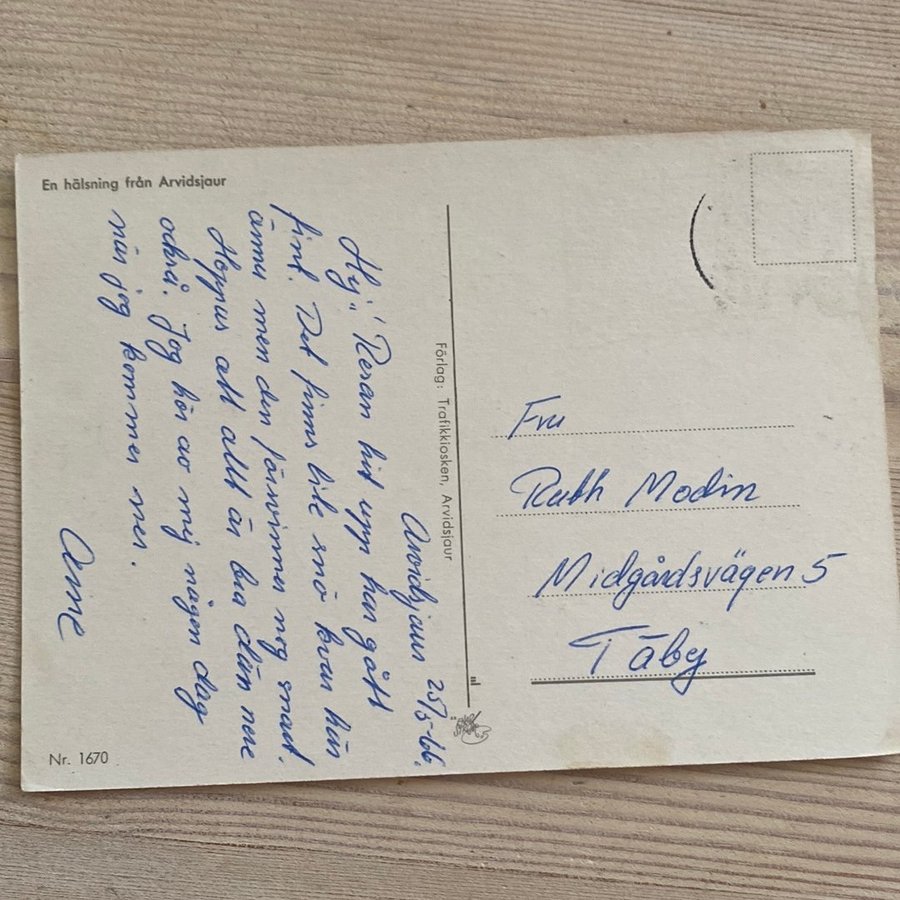 En hälsning från Arvidsjaur
Arvidsjaur 25/5-66.
Hej! Resan hit upp har gått
fint. Det finns lite snö kvar här
ännu men den försvinner nog snart.
Hoppas att allt är bra där nere
också. Jag hör av mej någon dag
när jag kommer ner.
Arne
Nr. 1670
Förlag: Trafikkiosken, Arvidsjaur
Fru
Ruth Modin
Midgårdsvägen 5
Täby